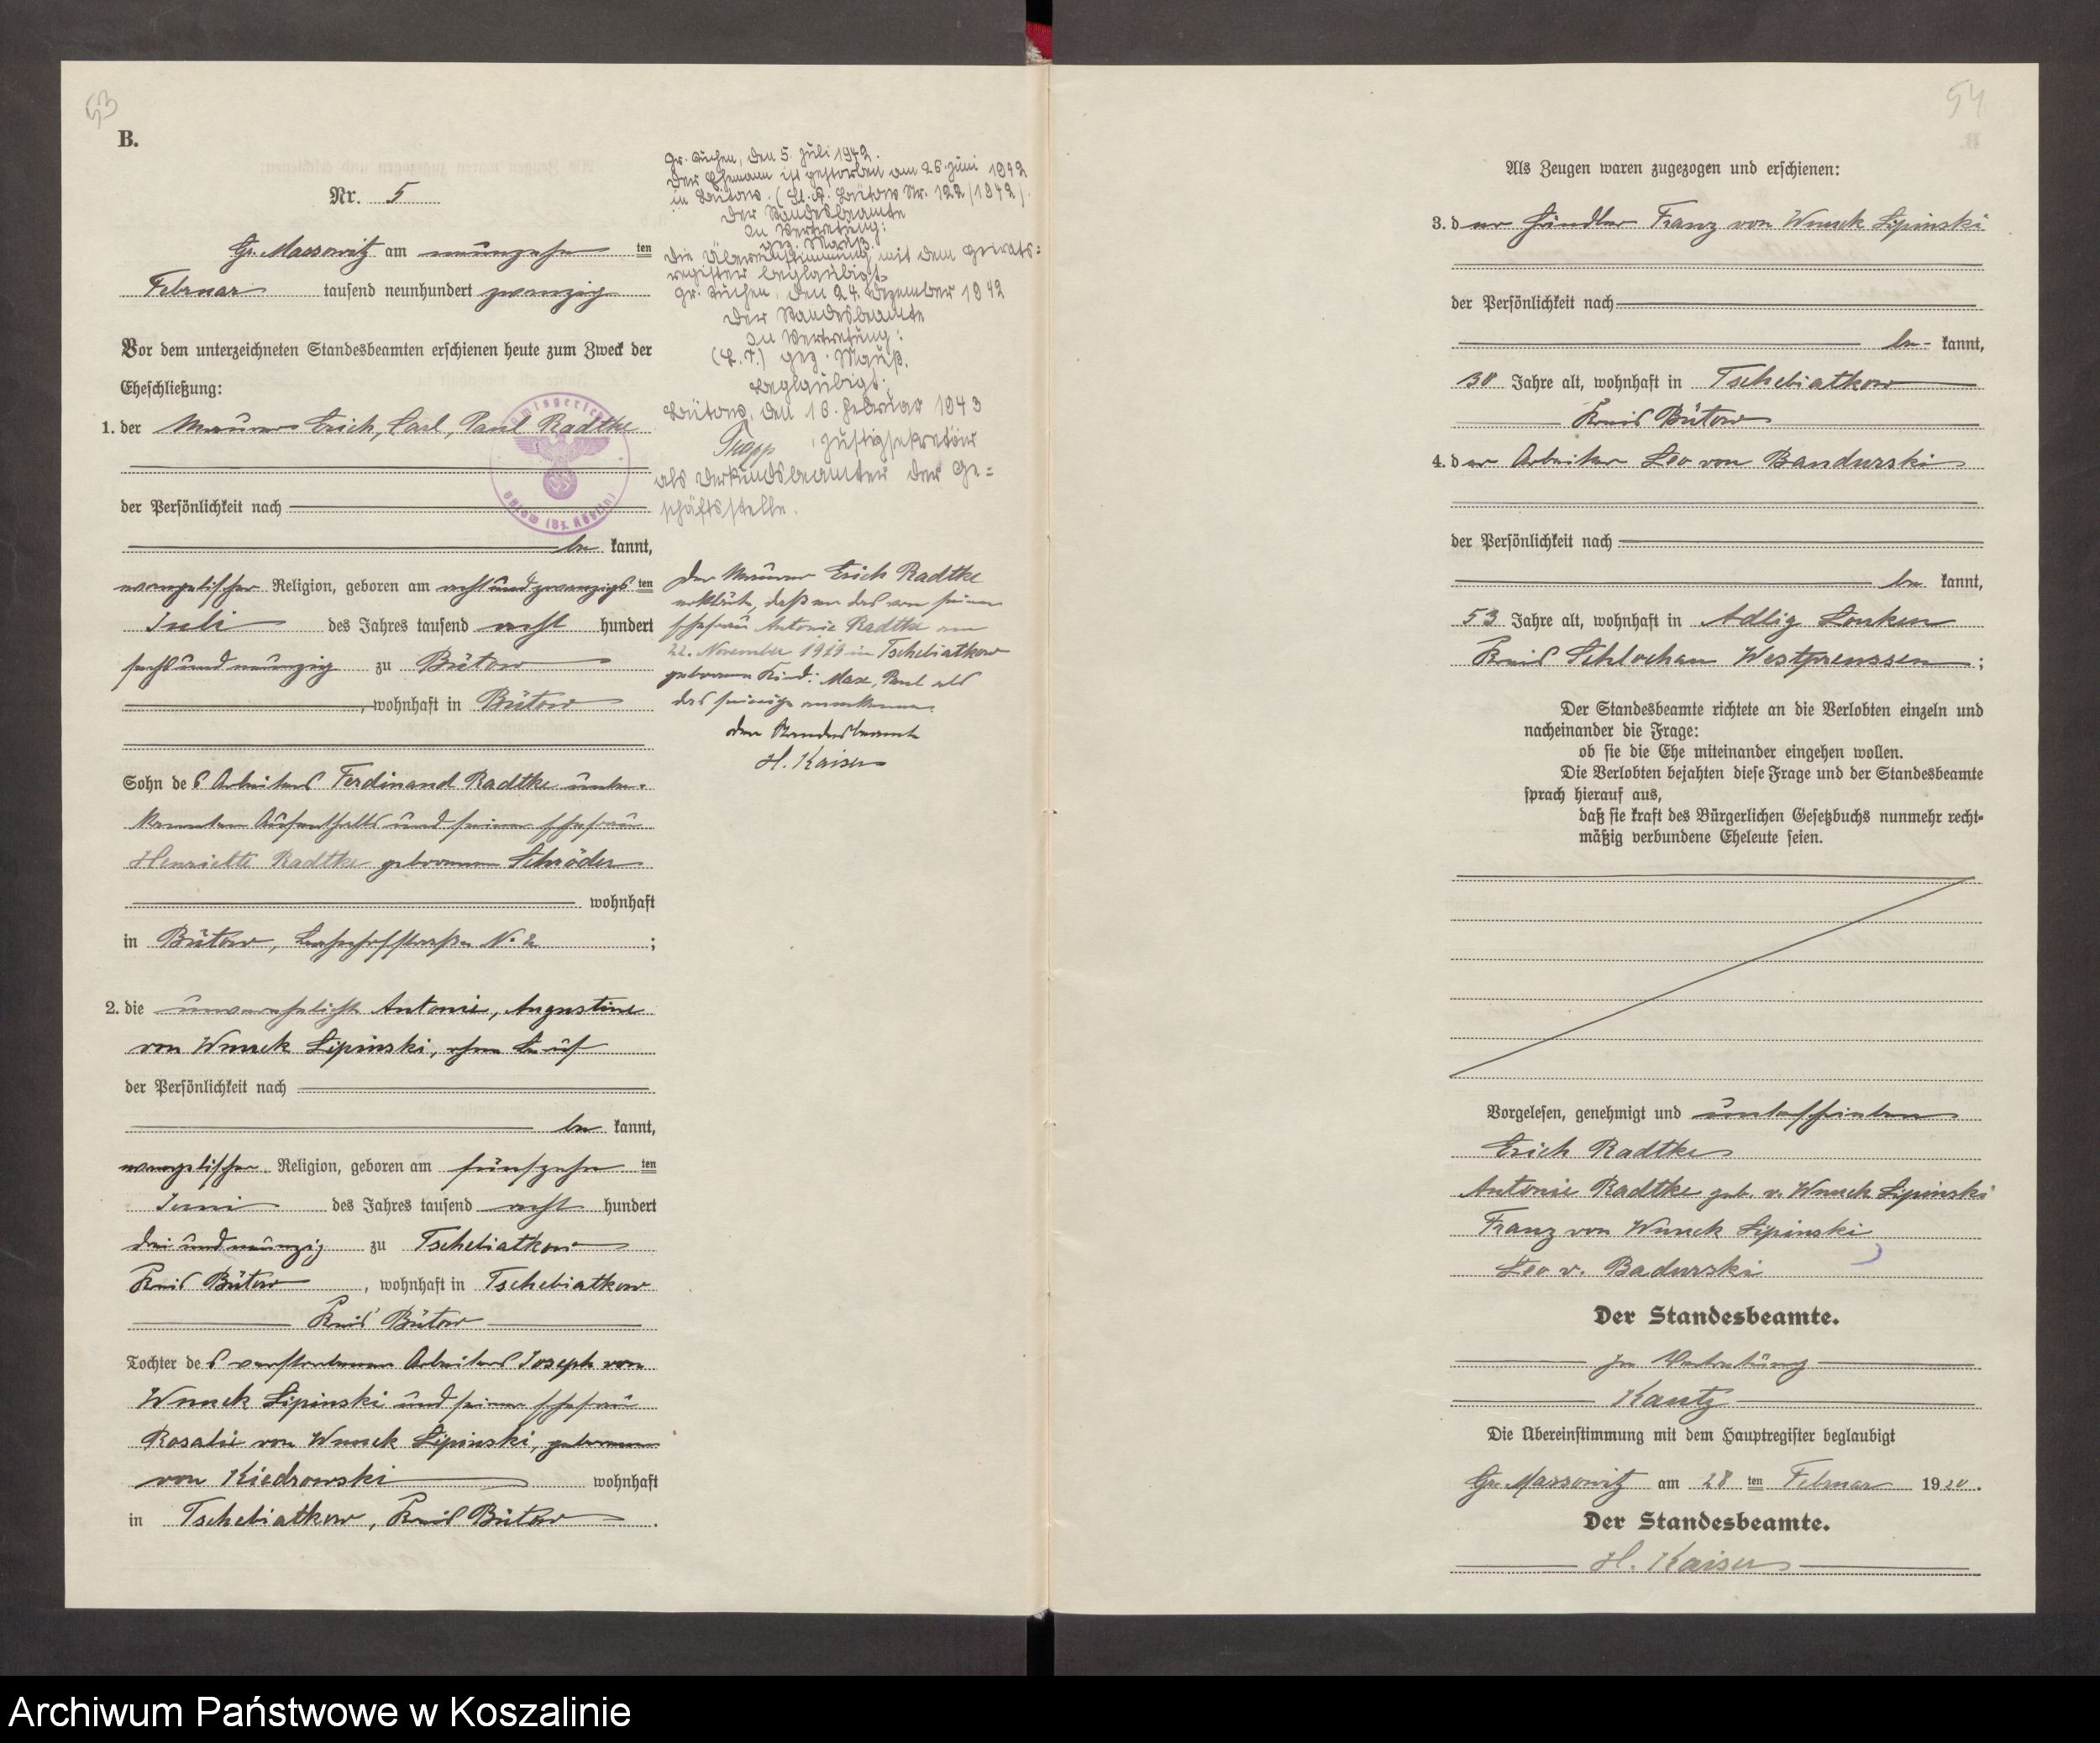 53
B.
Nr. 5
Gr. Massowitz am neunzehn ten
Februar tausend neunhundert zwanzig
Vor dem unterzeichneten Standesbeamten erschienen heute zum Zweck der
Eheschließung:
1. der Maurer Erich, Carl, Paul Radtke
der Persönlichkeit nach
be kannt,
evangelischer Religion, geboren am achtundzwanzigs ten
Juli des Jahres tausend acht hundert
sechsundneunzig zu Bütow
, wohnhaft in Bütow
Sohn des Arbeiters Ferdinand Radtke unbe-
kannten Aufenthalts und seiner Ehefrau
Henriette Radtke geborenen Schröder
wohnhaft
in Bütow, Bahnhofstraße N. 2 ;
2. die unverehelichte Antonie, Augustine
von Wnuck Lipinski, ohne Beruf
der Persönlichkeit nach
be kannt,
evangelischer Religion, geboren am fünfzehn ten
Juni des Jahres tausend acht hundert
dreiundneunzig zu Tschebiatkow
Kreis Bütow, wohnhaft in Tschebiatkow
Kreis Bütow
Tochter des verstorbenen Arbeiters Joseph von
Wnuck Lipinski und seiner Ehefrau
Rosalie von Wnuck Lipinski, geborenen
von Kiedrowski wohnhaft
in Tschebiatkow, Kreis Bütow .
Gr. Tuchen, den 5. Juli 1942.
Der Ehemann ist gestorben am 26. Juni 1942
in Bütow. (St. A. Bütow Nr. 122/1942).
Der Standesbeamte
In Vertretung:
gez. Mauß.
Die Übereinstimmung mit dem Heirats-
register beglaubigt.
Gr. Tuchen, den 24. Dezember 1942
Der Standesbeamte
In Vertretung:
(L.S.) gez. Mauß.
Beglaubigt:
Bütow, den 16. Februar 1943
, Justizsekretär
als Urkundsbeamter der Ge-
schäftsstelle.
Amtsgericht
Bütow (Bz. Köslin)
Der Maurer Erich Radtke
erklärte, daß er das von seiner
Ehefrau Antonie Radtke am
22. November 1919 in Tschebiatkow
geborene Kind: Max, Paul als
das seinige anerkenne.
Der Standesbeamte
H. Kaiser
54
Als Zeugen waren zugezogen und erschienen:
3. der Händler Franz von Wnuck Lipinski
der Persönlichkeit nach
be- kannt,
38 Jahre alt, wohnhaft in Tschebiatkow
Kreis Bütow
4. der Arbeiter Leo von Bandurski
der Persönlichkeit nach
be kannt,
53 Jahre alt, wohnhaft in Adlig Lonken
Kreis Schlochau Westpreussen ;
Der Standesbeamte richtete an die Verlobten einzeln und
nacheinander die Frage:
ob sie die Ehe miteinander eingehen wollen.
Die Verlobten bejahten diese Frage und der Standesbeamte
sprach hierauf aus,
daß sie kraft des Bürgerlichen Gesetzbuchs nunmehr recht-
mäßig verbundene Eheleute seien.
Vorgelesen, genehmigt und unterschrieben
Erich Radtke
Antonie Radtke geb. v. Wnuck Lipinski
Franz von Wnuck Lipinski
Leo v. Badurski
Der Standesbeamte.
In Vertretung
Kautz
Die Übereinstimmung mit dem Hauptregister beglaubigt
Gr. Massowitz am 28 ten Februar 1920.
Der Standesbeamte.
H. Kaiser
Archiwum Państwowe w Koszalinie